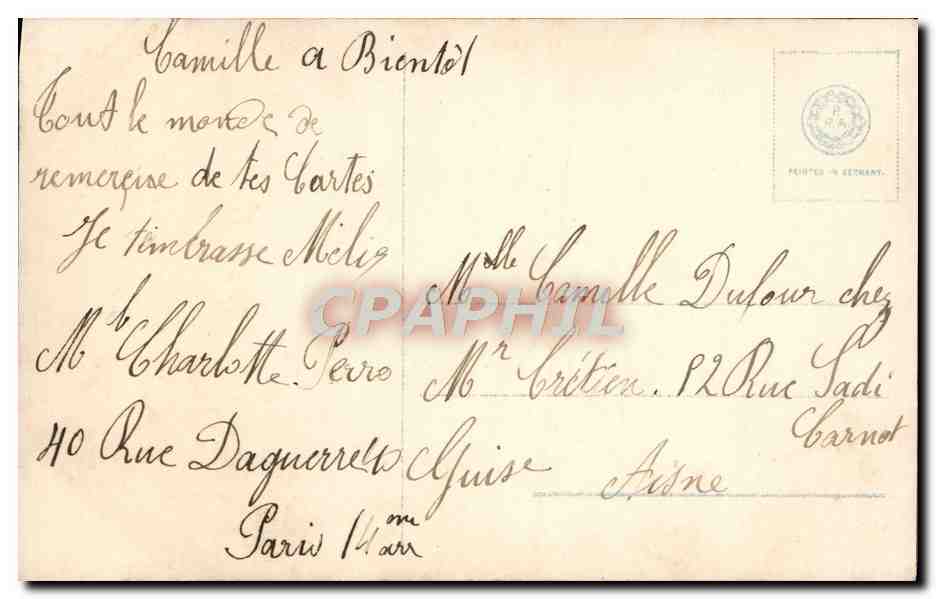 Camille a Bientôt
Tout le monde de
remerçise de tes Cartes
Je t'embrasse Mélie
Mlle Charlotte Perro
40 Rue Daguerre
Paris 14me arr
R
P.A
PRINTED IN GERMANY.
Mlle Camille Dufour chez
Mr Crétien. 12 Rue Sadi
Carnot
Guise Aisne
CPAPHIL